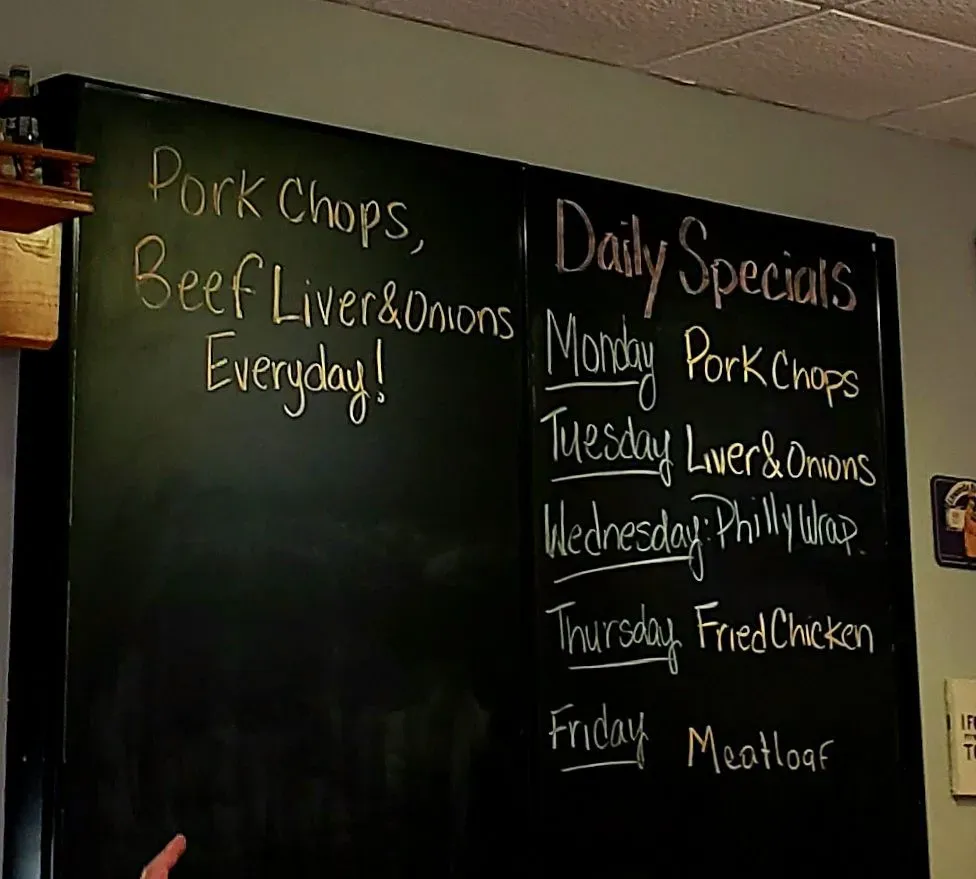 Pork Chops,
Beef Liver & Onions
Everyday!
Daily Specials
Monday Pork Chops
Tuesday Liver & Onions
Wednesday: Philly Wrap.
Thursday Fried Chicken
Friday Meatloaf